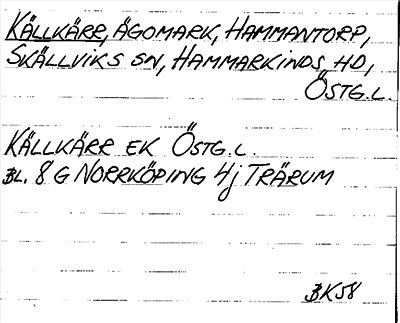 KÄLLKÄRR, ÄGOMARK, HAMMANTORP,
SKÄLLVIKS SN, HAMMARKINDS HD,
ÖSTG.L.
KÄLLKÄRR EK ÖSTG.L.
BL. 8 G NORRKÖPING 4j TRÄRUM
BK58